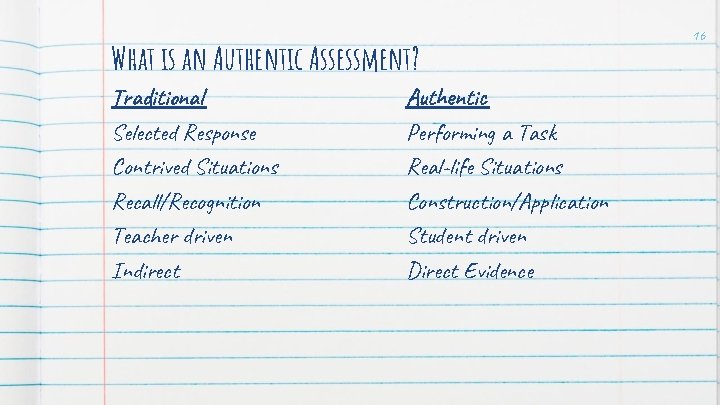 16
What is an Authentic Assessment?
Traditional
Selected Response
Contrived Situations
Recall/Recognition
Teacher driven
Indirect
Authentic
Performing a Task
Real-life Situations
Construction/Application
Student driven
Direct Evidence